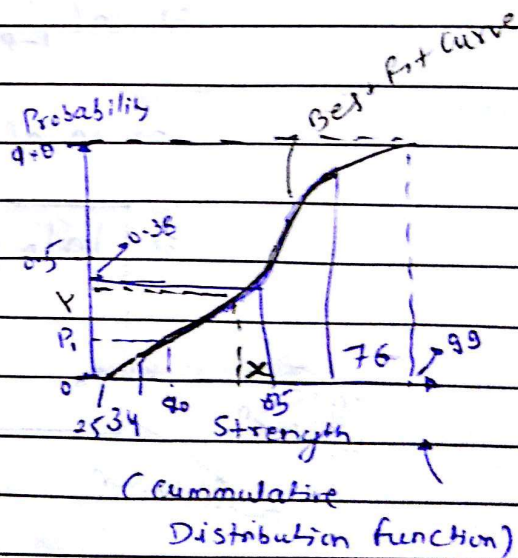 Best Fit Curve
Probability
1.0
0.35
0.5
Y
P1
0
X
76
99
25 34 40 65
Strength
(Cummulative
Distribution function)